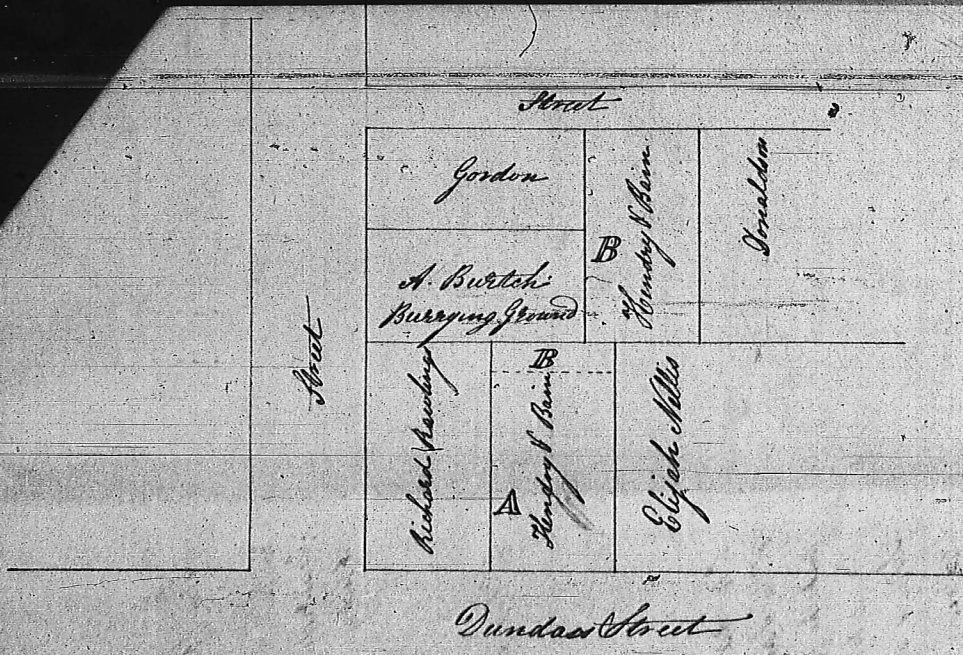 Street
Gordon
A. Burtch
Burrying Ground
B
Hendry & Bain
Donaldson
Street
Richard Rawlings
B
A
Hendry & Bain
Elijah Nelles
Dundass Street